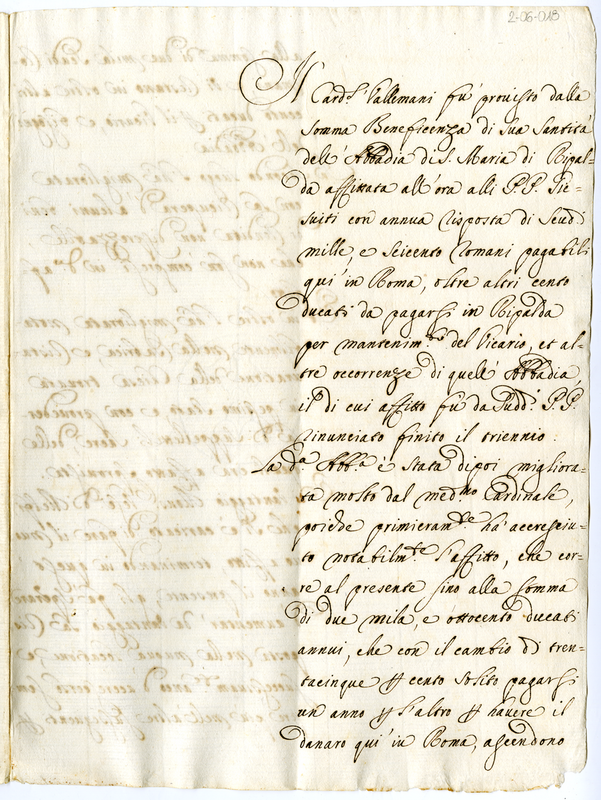 2-06-018
Il Card.l Vallemani fù provisto dalla
somma Beneficenza di Sua Santità
dell' Abbadia di S. Maria di Ripal-
da affittata all'ora alli P.P. Gie-
suiti con annua risposta di Scudi
mille, e seicento romani pagabili
quì in Roma, oltre altri cento
ducati da pagarsi in Ripalda
per mantenim.to del Vicario, et al-
tre occorrenze di quell' Abbadia,
il di cui affitto fù da sudd.i P.P.
rinunciato finito il triennio.
La d.a Abb.a è stata dipoi migliora-
ta molto dal med.mo Cardinale,
poiche primieram.te hà accresciu-
to notabilm.te l'affitto, che cor-
re al presente sino alla somma
di due mila, e ottocento ducati
annui, che con il cambio di tren-
tacinque p cento solito pagarsi
un anno p l'altro p havere il
danaro quì in Roma, ascendono